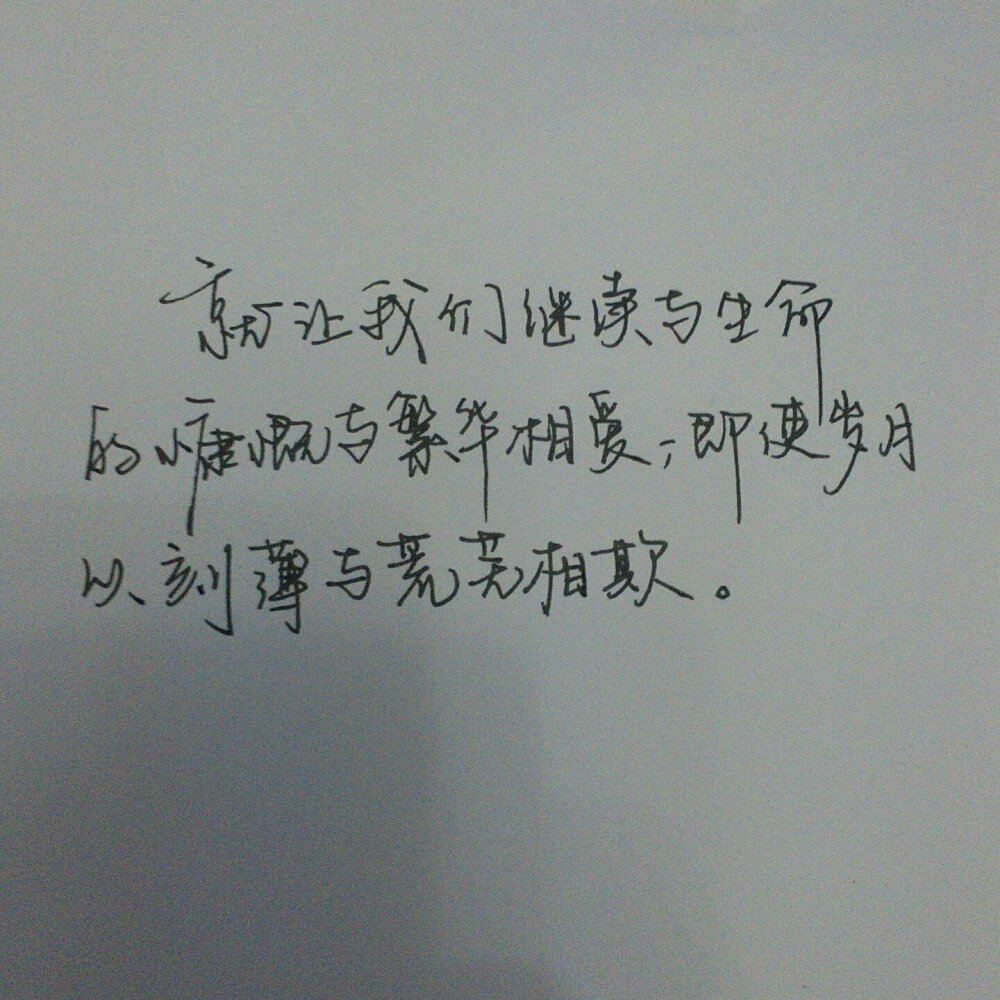 就让我们继续与生命
的慷慨与繁华相爱；即使岁月
以刻薄与荒芜相欺。